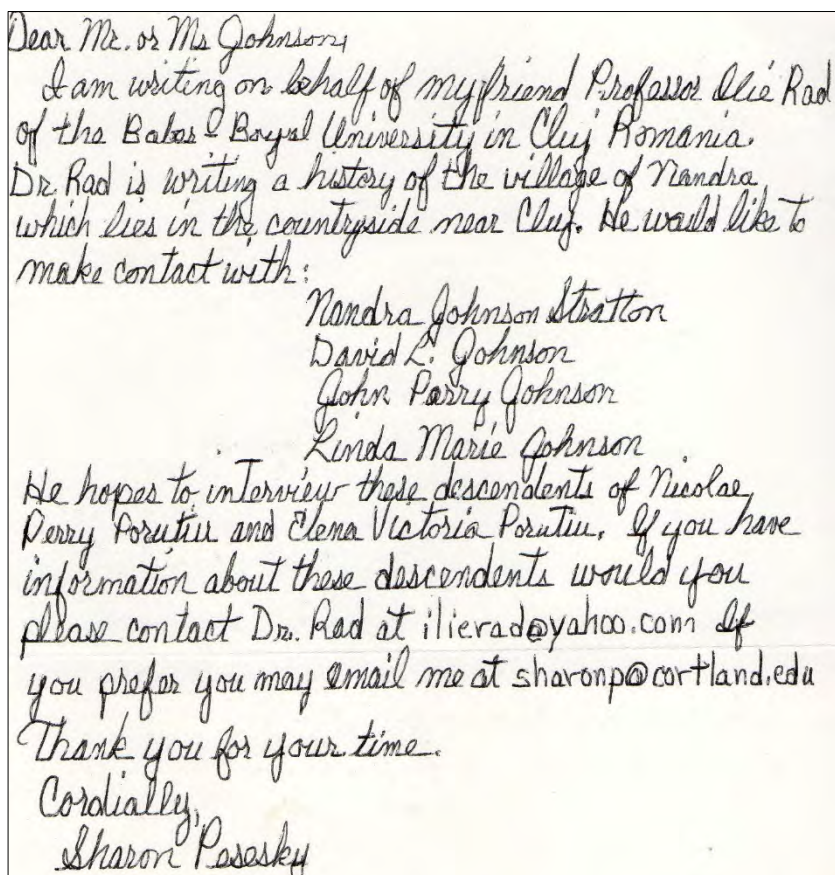 Dear Mr. or Ms Johnson,
I am writing on behalf of my friend Professor Ilie Rad
of the Babes-Boyal University in Cluj Romania.
Dr. Rad is writing a history of the village of Nandra
which lies in the countryside near Cluj. He would like to
make contact with:
Nandra Johnson Stratton
David L. Johnson
John Perry Johnson
Linda Marie Johnson
He hopes to interview these descendents of Nicolae
Perry Porutiu and Elena Victoria Porutiu. If you have
information about these descendents would you
please contact Dr. Rad at ilierad@yahoo.com If
you prefer you may email me at sharonp@cortland.edu
Thank you for your time.
Cordially,
Sharon Pesesky